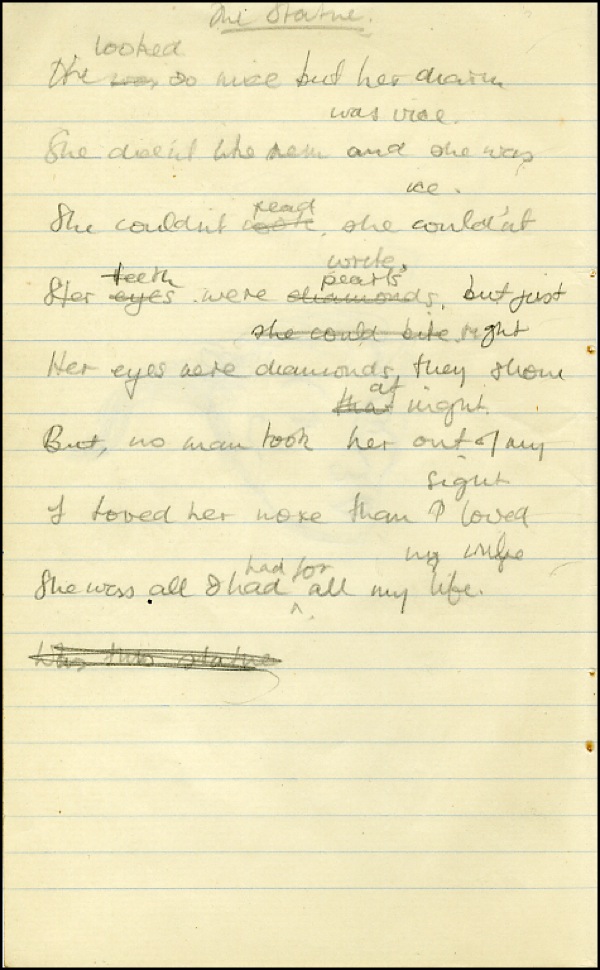 The Statue.
looked
She was so nice but her charm
was vice.
She didn't like men and she was
ice.
read
She couldn't, she couldn't
write,
teeth pearls
Her eyes were diamonds, but just
she could bite right
Her eyes were diamonds, they shone
at
that night.
But, no man took her out of my
sight
I loved her more than I loved
my wife
had for
She was all I had all my life.
was this statue